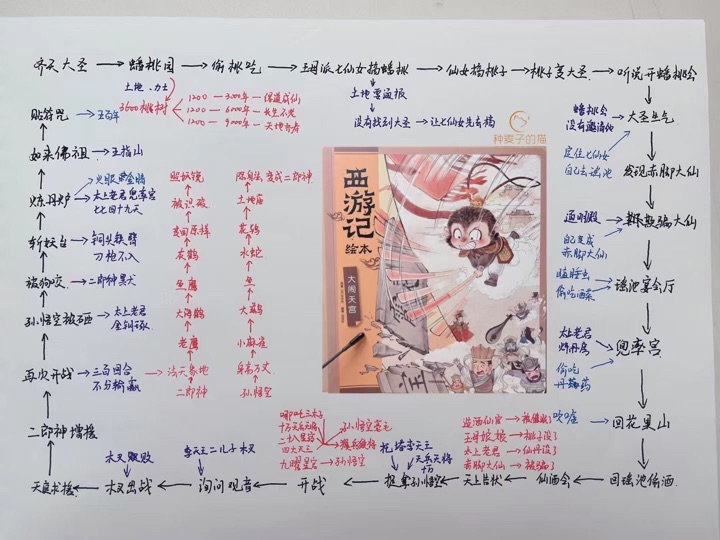 齐天大圣 → 蟠桃园 → 偷桃吃 → 王母派七仙女摘蟠桃 → 仙女摘桃子 → 桃子变大圣 → 听说开蟠桃会
土地、力士
3600桃树
1200 — 3000年 — 得道成仙
1200 — 6000年 — 长生不老
1200 — 9000年 — 天地齐寿
土地要通报
没有找到大圣 → 让七仙女先去摘
蟠桃会
没有邀请他
大圣生气
定住七仙女
自己去瑶池
发现赤脚大仙
通明殿
欺骗大仙
自己变成
赤脚大仙
瞌睡虫
偷吃酒菜
瑶池宴会厅
太上老君
炼丹房
兜率宫
偷吃
丹药
回花果山
回瑶池偷酒
仙酒会
天上告状
造酒仙官 → 被催眠了
王母娘娘 → 桃子没了
太上老君 → 仙丹没了
赤脚大仙 → 被骗了
捉拿孙悟空
托塔李天王
天兵天将
十万
开战
哪吒三太子
十万天兵天将
二十八星宿
四大天王
九曜星官 → 孙悟空
询问观音
李天王二儿子木叉
木叉出战
木叉败
天庭求援
二郎神增援
再次开战 → 三百回合
不分输赢
孙悟空被砸 → 太上老君
金刚琢
被狗咬 → 二郎神黑犬
斩妖台 → 铜头铁臂
刀枪不入
炼丹炉 → 火眼金睛
太上老君兜率宫
七七四十九天
如来佛祖 → 五指山
贴符咒 → 五百年
照妖镜
被识破
变回原样
灰鹤
鱼鹰
大海鹤
老鹰
法天象地
二郎神
变成二郎神
土地庙
花鸨
水蛇
鱼
大鹚
小麻雀
身高万丈
孙悟空
种麦子的猫
西游记
绘本
大闹天宫